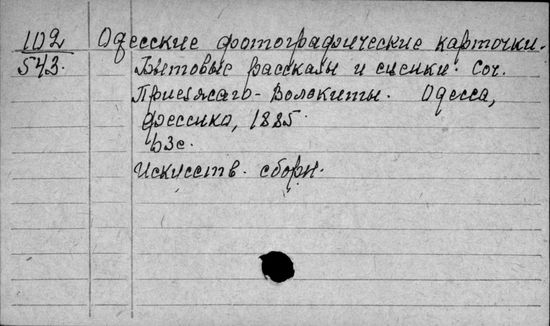 102 Одесские фотографические карточки.
543. Бытовые рассказы и сценки. Соч.
Присяжаго-Волокиты. Одесса,
Фессика, 1885.
63с.
Искусств. сборн.